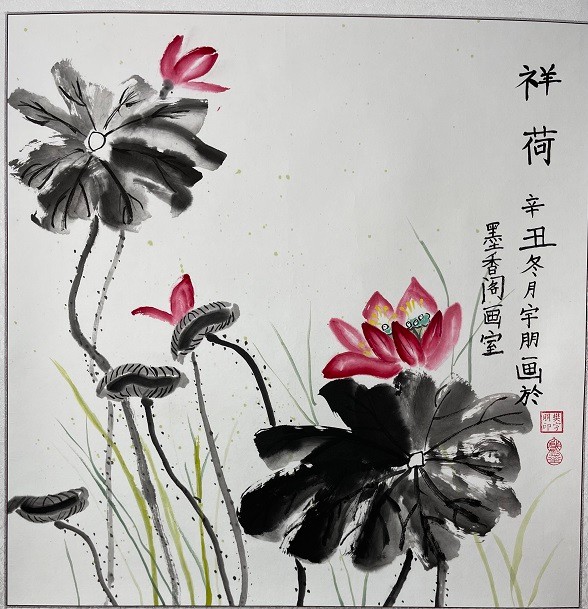 祥荷
辛丑冬月宇朋画於
墨香阁画室